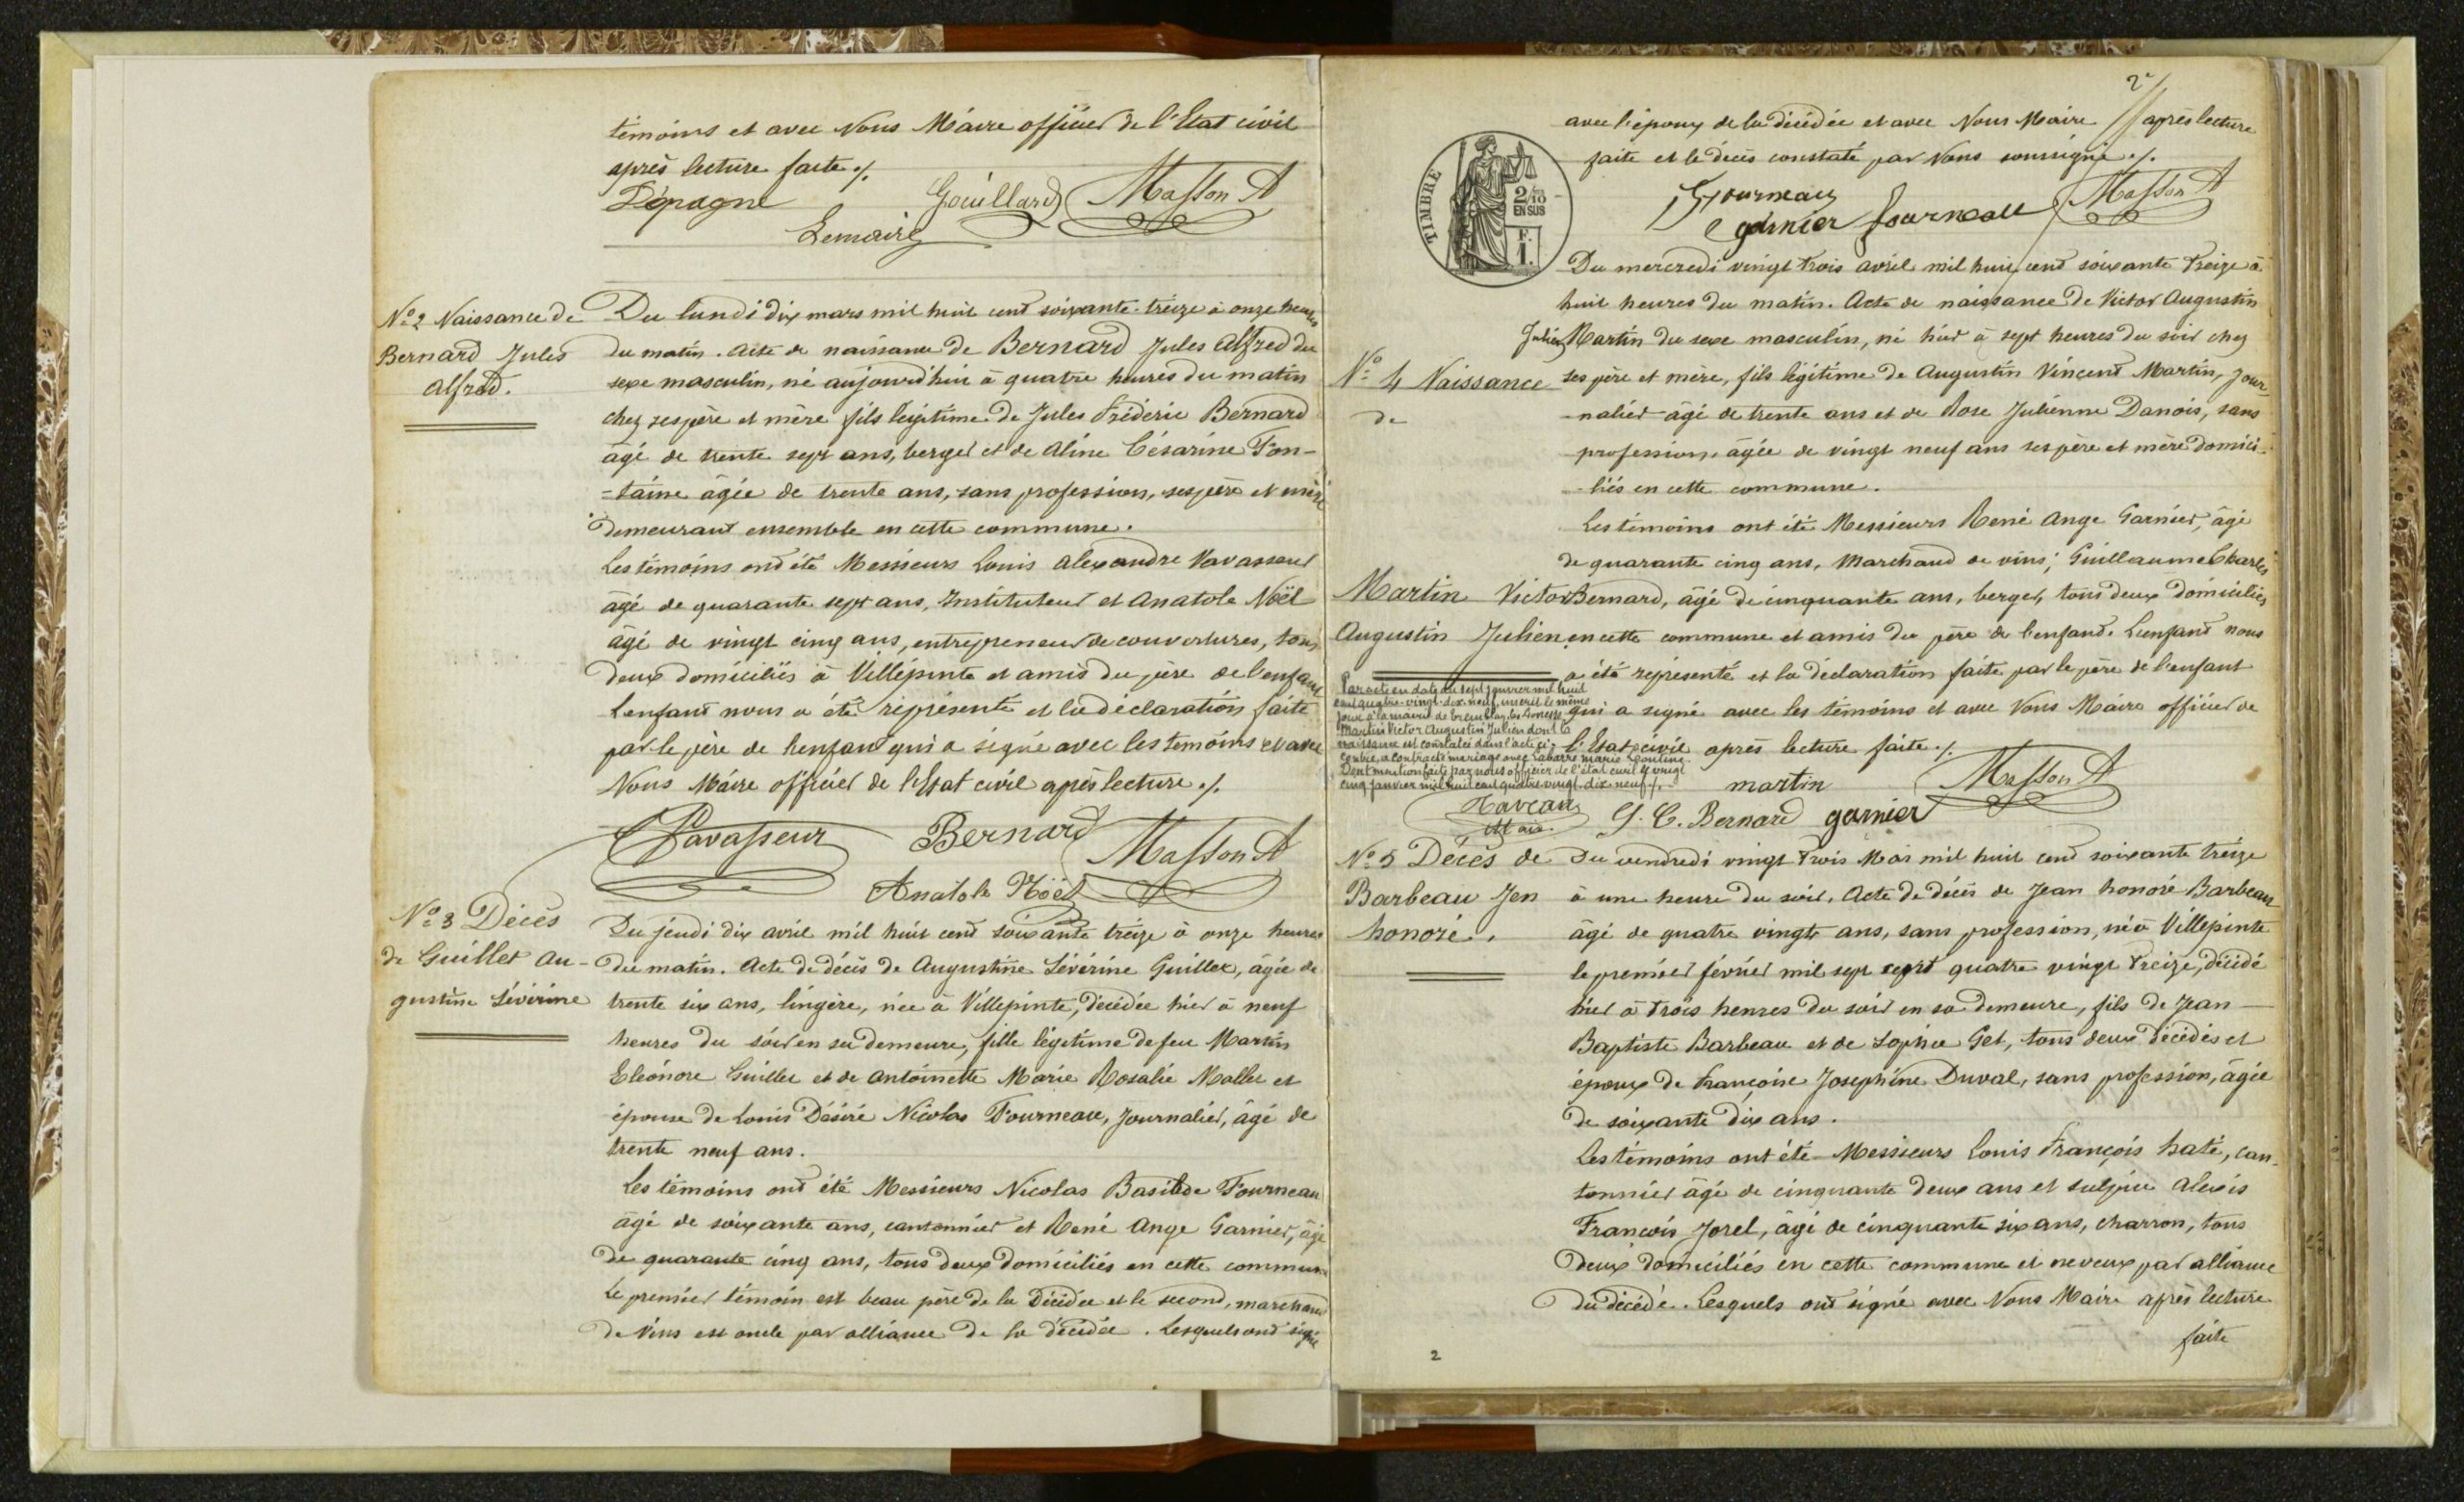 témoins et avec Nous Maire officier de l'Etat civil
après lecture faite ./.
Lépagne Gouillard Masson A
Lemaire
No 2 Naissance de
Bernard Jules
Alfred.
Du lundi dix mars mil huit cent soixante-treize à onze heures
du matin. Acte de naissance de Bernard Jules Alfred du
sexe masculin, né aujourd'hui à quatre heures du matin
chez ses père et mère fils légitime de Jules Fréderic Bernard
âgé de trente sept ans, berger et de Aline Césarine Fon-
=taine âgée de trente ans, sans profession, ses père et mère
demeurant ensemble en cette commune.
Les témoins ont été Messieurs Louis Alexandre Vavasseur
âgé de quarante sept ans, Instituteur et Anatole Noël
âgé de vingt cinq ans, entrepreneur de couvertures, tous
deux domiciliés à Villepinte et amis du père de l'enfant
L'enfant nous a été représenté et la déclaration faite
par le père de l'enfant qui a signé avec les témoins et avec
Nous Maire officier de l'Etat civil après lecture ./.
Vavasseur Bernard Masson A
Anatole Noël
No 3 Décès
de Guillet Au-
gustine Sévérine
Du jeudi dix avril mil huit cent soixante treize à onze heures
du matin. Acte de décès de Augustine Sévérine Guillet, âgée de
trente six ans, lingère, née à Villepinte, décédée hier à neuf
heures du soir en sa demeure, fille légitime de feu Martin
Eléonore Guillet et de Antoinette Marie Rosalie Mallet et
épouse de Louis Désiré Nicolas Fourneau, Journalier, âgé de
trente neuf ans.
Les témoins ont été Messieurs Nicolas Basilide Fourneau
âgé de soixante ans, cantonnier et René Ange Garnier, âgé
de quarante cinq ans, tous deux domiciliés en cette commune
Le premier témoin est beau père de la Décédée et le second, marchand
de vins est oncle par alliance de la décédée. Lesquels ont signé
2
avec l'époux de la décédée et avec Nous Maire après lecture
faite et le décès constaté par Nous soussigné ./.
TIMBRE
2/10
EN SUS
F.
1.
Fourneau Masson A
garnier fourneau
Du mercredi vingt trois avril mil huit cent soixante treize à
huit heures du matin. Acte de naissance de Victor Augustin
Julien Martin du sexe masculin, né hier à sept heures du soir chez
No 4 Naissance
de
Martin Victor
Augustin Julien
ses père et mère, fils légitime de Augustin Vincent Martin, Jour-
-nalier âgé de trente ans et de Rose Julienne Danois, sans
profession, âgée de vingt neuf ans ses père et mère domici-
-liés en cette commune.
Les témoins ont été Messieurs René Ange Garnier, âgé
de quarante cinq ans, Marchand de vins; Guillaume Charles
Bernard, âgé de cinquante ans, berger, tous deux domiciliés
en cette commune et amis du père de l'enfant. L'enfant nous
a été représenté et la déclaration faite par le père de l'enfant
qui a signé avec les témoins et avec Nous Maire officier de
l'Etat civil après lecture faite ./.
Par acte en date du sept janvier mil huit
cent quatre-vingt-dix-neuf, inscrit le même
jour à la mairie de Tremblay-les-Gonesse
Martin Victor Augustin Julien dont la
naissance est constatée dans l'acte ci-
contre, a contracté mariage avec Labarre Marie
Dont mention faite par nous officier de l'état civil le vingt
cinq janvier mil huit cent quatre-vingt-dix-neuf ./.
Maire
martin Masson A
G. C. Bernard garnier
No 5 Décès de
Barbeau Jen
honoré.
Du vendredi vingt trois Mai mil huit cent soixante treize
à une heure du soir. Acte de décès de Jean honoré Barbeau
âgé de quatre vingts ans, sans profession, né à Villepinte
le premier février mil sept cent quatre vingt treize, décédé
hier à trois heures du soir en sa demeure, fils de Jean
Baptiste Barbeau et de Sophie Get, tous deux décédés et
époux de Françoise Josephine Duval, sans profession, âgée
de soixante dix ans.
Les témoins ont été Messieurs Louis François haté, can-
tonnier âgé de cinquante deux ans et Sulpice Alexis
François Jorel, âgé de cinquante six ans, charron, tous
deux domiciliés en cette commune et neveux par alliance
du décédé. Lesquels ont signé avec Nous Maire après lecture
faite
2